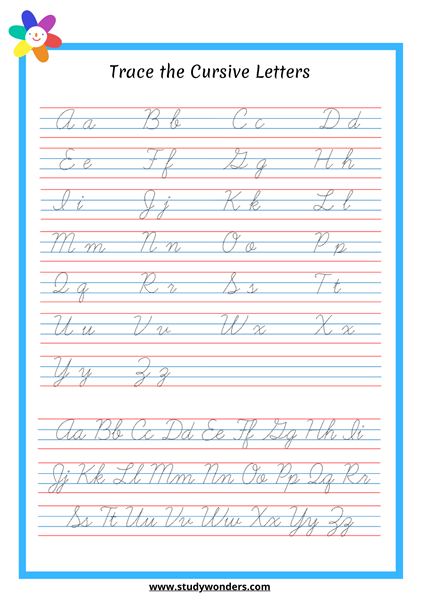 Trace the Cursive Letters
A a B b C c D d
E e F f G g H h
I i J j K k L l
M m N n O o P p
Q q R r S s T t
U u V v W x X x
Y y Z z
Aa Bb Cc Dd Ee Ff Gg Hh Ii
Jj Kk Ll Mm Nn Oo Pp Qq Rr
Ss Tt Uu Vv Ww Xx Yy Zz
www.studywonders.com